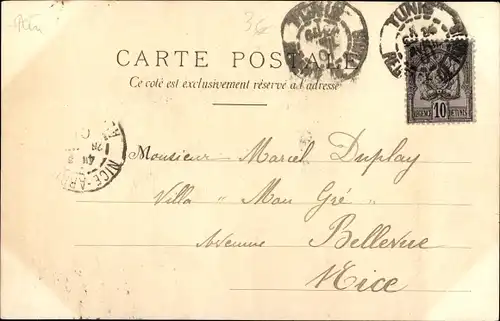 3€
TUNIS
TUNIS
CARTE POSTALE
Ce côté est exclusivement réservé à l'adresse
10
REGENCE DE TUNIS
Monsieur Marcel Duplay
Villa "Mon Gré"
Avenue Bellevue
Nice
NICE